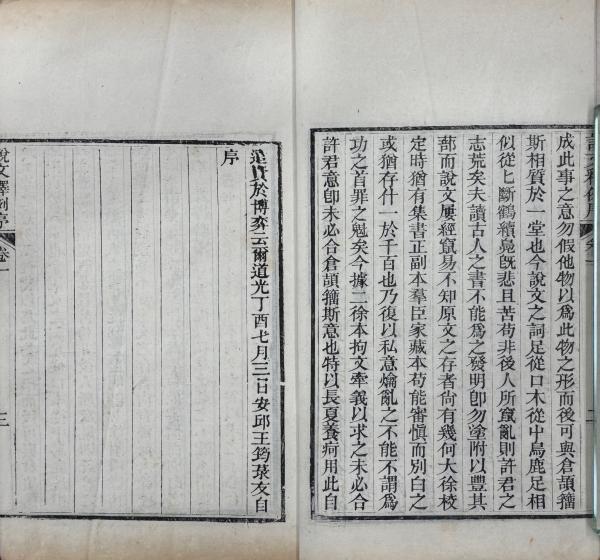 成此事之意勿假他物以爲此物之形而後可與倉頡籒
斯相質於一堂也今說文之詞足從口木從屮鳥鹿足相
似從匕斷鶴續鳧旣悲且苦苟非後人所竄亂則許君之
志荒矣夫讀古人之書不能爲之發明卽勿塗附以豐其
蔀而說文屢經竄易不知原文之存者尙有幾何大徐校
定時猶有集書正副本羣臣家藏本苟能審愼而別白之
或猶存什一於千百也乃復以私意爚亂之不能不謂爲
功之首罪之魁矣今據二徐本拘文牽義以求之未必合
許君意卽未必合倉頡籒斯意也特以長夏養疴用此自
遣賢於博弈云爾道光丁酉七月三日安邱王筠菉友自
序
說文釋例序 卷一 三